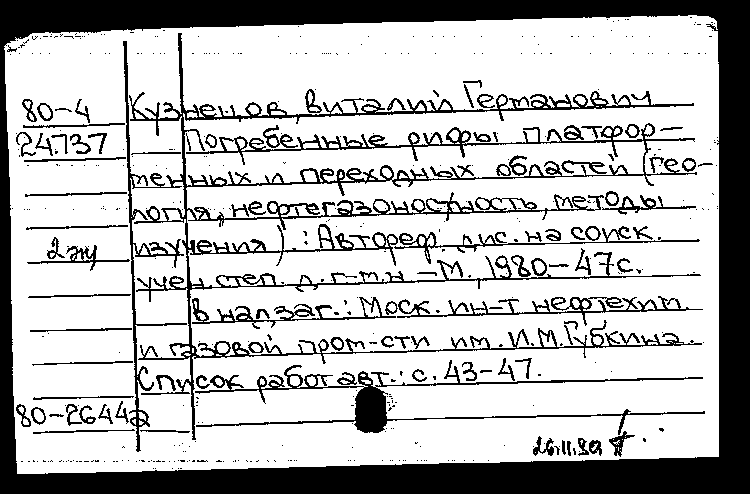 80-4 Кузнецов, Виталий Германович
24737 Погребенные рифы платфор-
менных и переходных областей (гео-
логия, нефтегазоносность, методы
2 эку изучения). : Автореф. дис. на соиск.
учен. степ. д. г-м.н - М., 1980. - 47с.
В надзаг.: Моск. ин-т нефтехим.
и газовой пром-сти им. И.М. Губкина.
Список работ авт.: с. 43-47.
80-26442